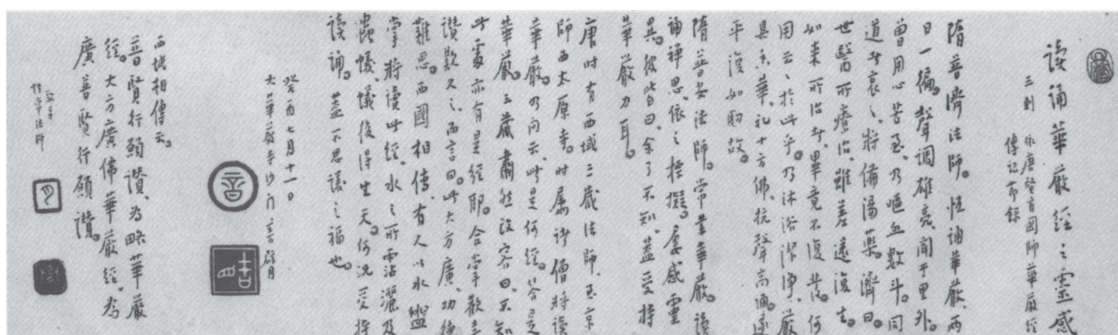 讀誦華嚴經之靈感
三則 依唐賢首國師華嚴經
傳記節錄
隋普濟法師。恒誦華嚴。兩
日一徧。聲調雄亮。聞于里外。
曾用心苦至。乃嘔血數斗。同
道皆哀之。將備湯藥。濟曰。
世醫所療治。雖差還復生。
如來所治者。畢竟不復發。何
用云云於此乎。乃沐浴潔淨。嚴
具香華。礼十方佛。抗聲高誦。遂
平復如故。
隋普安法師。常業華嚴。讀
誦禪思。依之揩擬。屢感靈
異。彼皆曰。余了不知。蓋受持
華嚴力耳。
唐時有西域三藏法師。至京
師西太原寺。時屬諸僧將讀
華嚴。乃問云。此是何經。答是
華嚴。三藏肅然改容曰。不知
此處亦有是經耶。合掌歡喜
讚歎久之而言曰。此大方廣。功德
難思。西國相傳。有人以水盥
掌。將讀此經。水之所霑灑及
蟲蟻。後得生天。何況受持
讀誦。蓋不思議之福也。
癸酉七月十一日
大華嚴寺沙門
音
西域相傳云。
普賢行願讚。為略華嚴
經。大方廣佛華嚴經。為
廣普賢行願讚。
性常法師
月